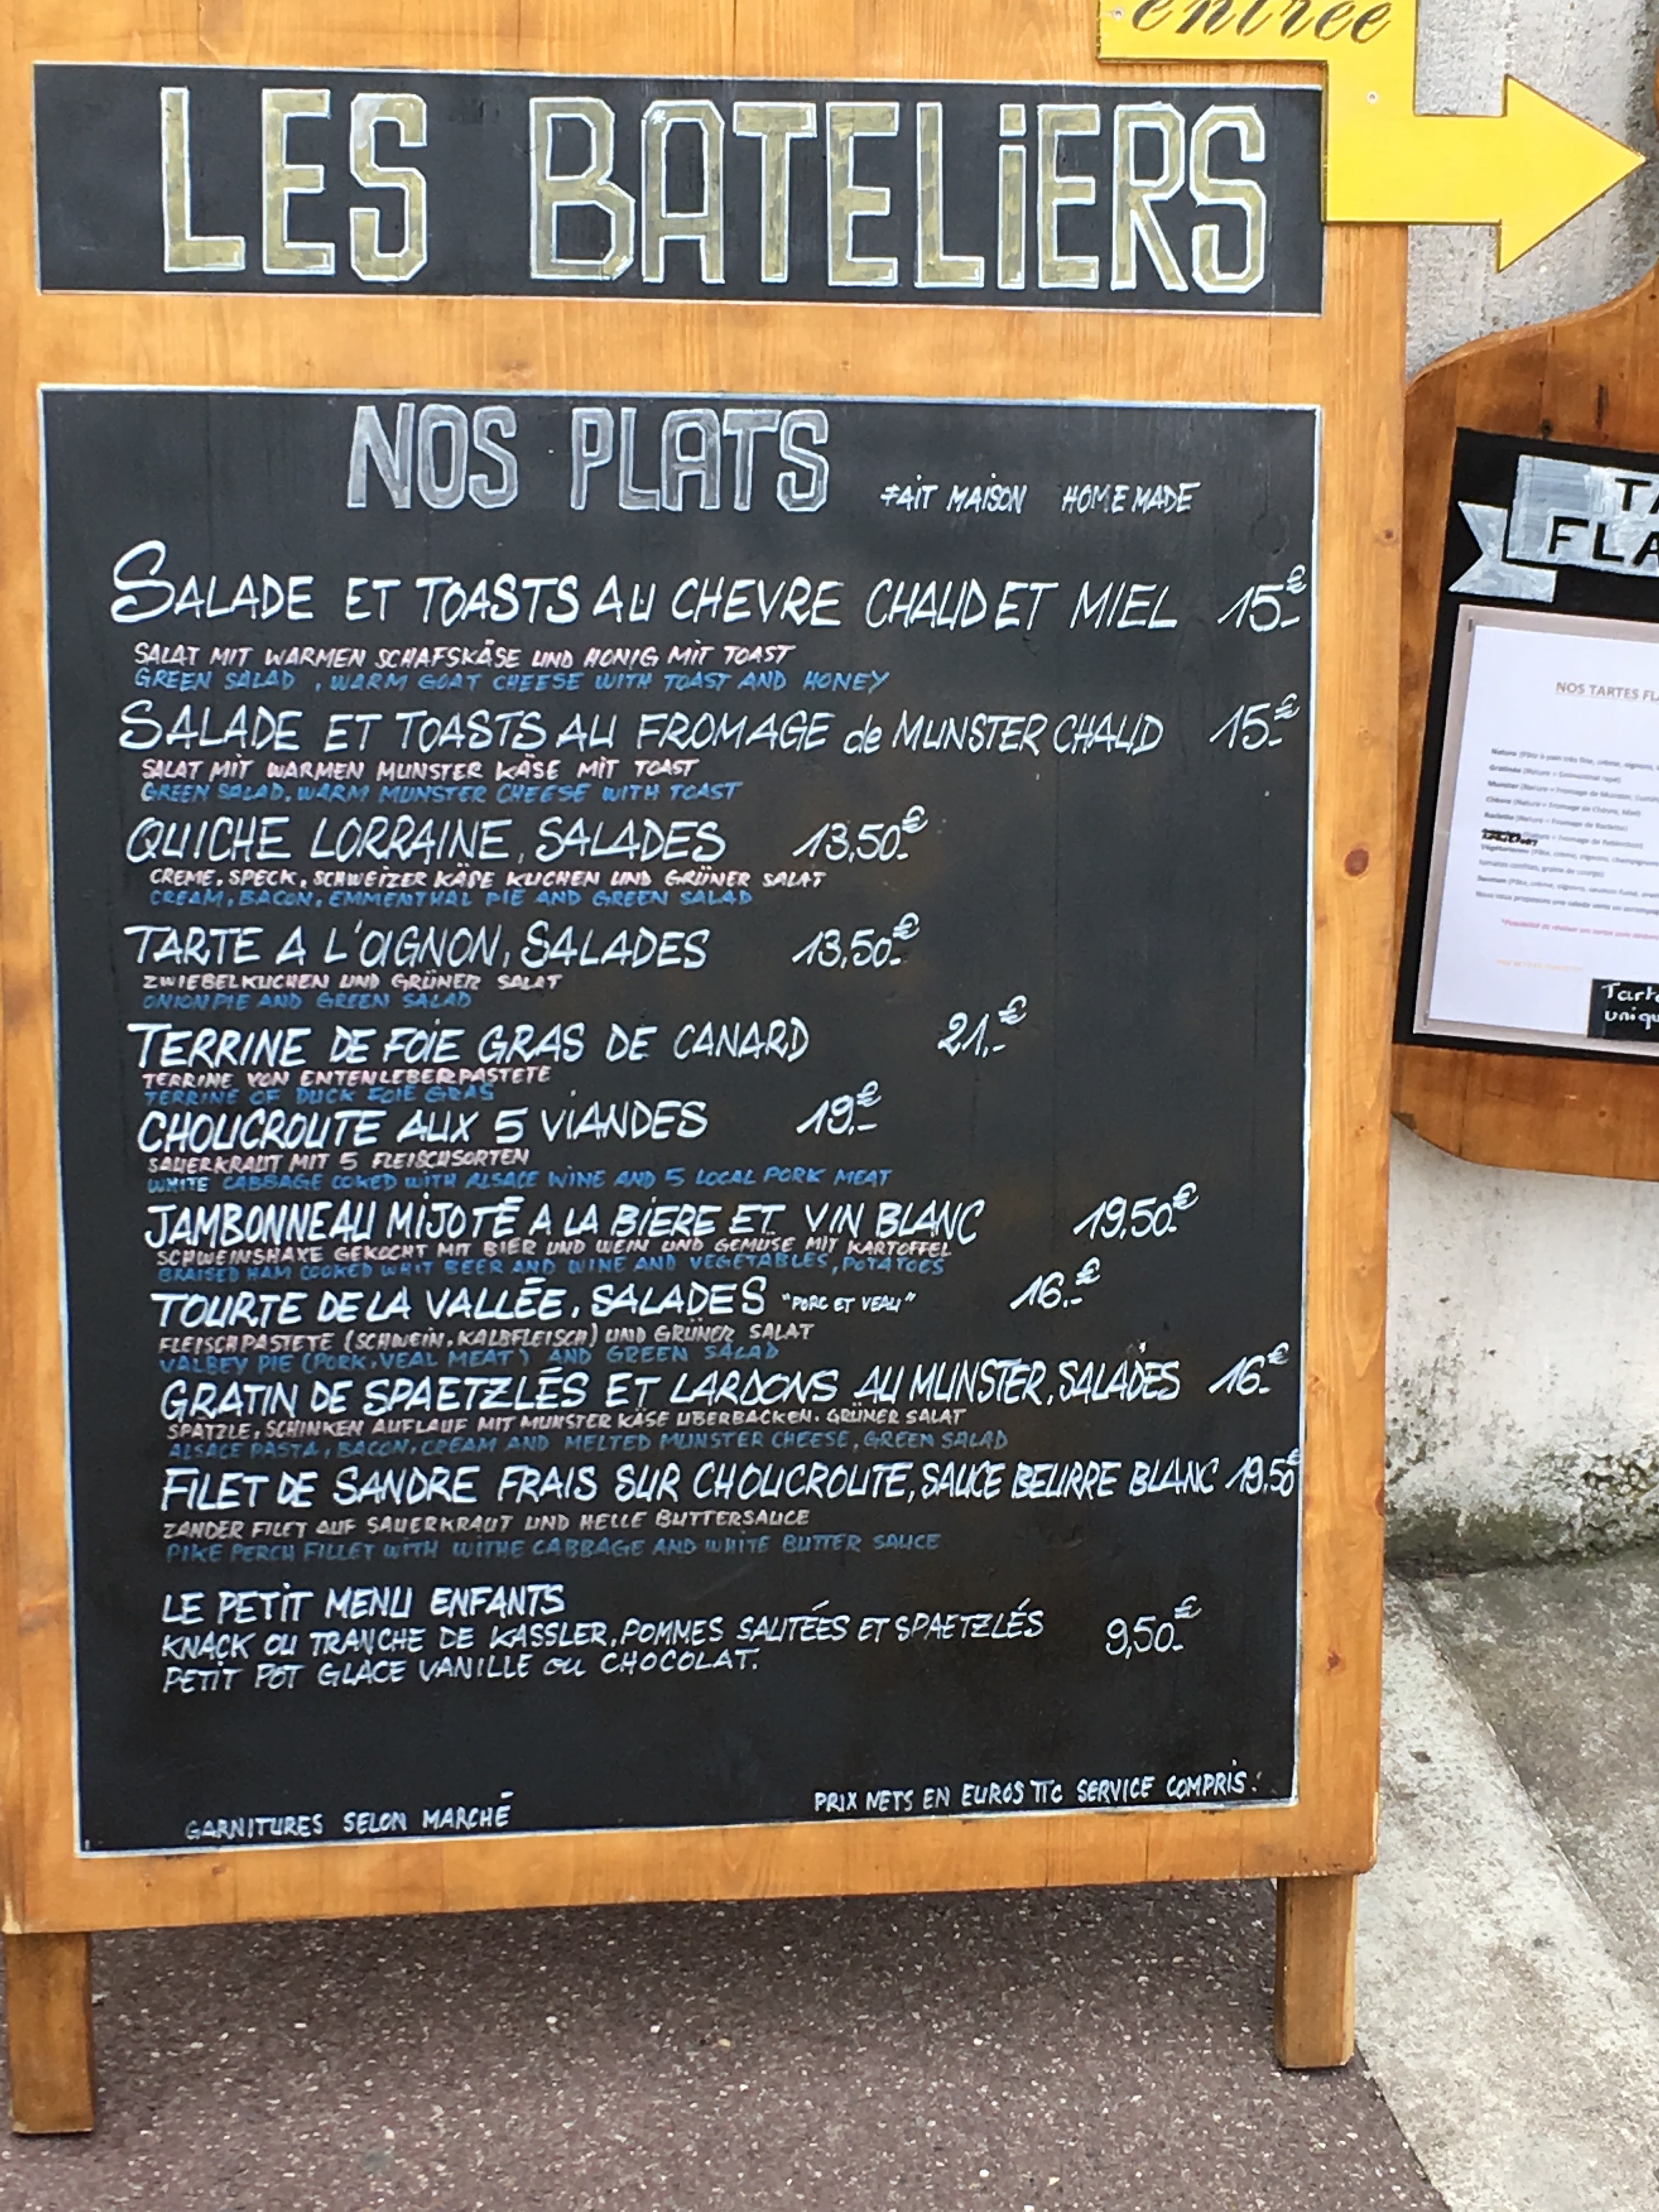 entrée
LES BATELiERS
NOS PLATS FAIT MAISON HOME MADE
SALADE ET TOASTS AU CHEVRE CHAUD ET MIEL 15.-€
SALAT MIT WARMEN SCHAFSKÄSE UND HONIG MIT TOAST
GREEN SALAD , WARM GOAT CHEESE WITH TOAST AND HONEY
SALADE ET TOASTS AU FROMAGE de MUNSTER CHAUD 15.-€
SALAT MIT WARMEN MUNSTER KÄSE MIT TOAST
GREEN SALAD. WARM MUNSTER CHEESE WITH TOAST
QUICHE LORRAINE, SALADES 13,50.-€
CREME, SPECK, SCHWEIZER KÄSE KUCHEN UND GRÜNER SALAT
CREAM, BACON, EMMENTHAL PIE AND GREEN SALAD
TARTE A L'OIGNON, SALADES 13,50.-€
ZWIEBELKUCHEN UND GRÜNER SALAT
ONION PIE AND GREEN SALAD
TERRINE DE FOIE GRAS DE CANARD 21.-€
TERRINE VON ENTENLEBERPASTETE
TERRINE OF DUCK FOIE GRAS
CHOUCROUTE AUX 5 VIANDES 19.-€
SAUERKRAUT MIT 5 FLEISCHSORTEN
WHITE CABBAGE COKED WITH ALSACE WINE AND 5 LOCAL PORK MEAT
JAMBONNEAU MIJOTÉ A LA BIERE ET VIN BLANC 19,50.-€
SCHWEINSHAXE GEKOCHT MIT BIER UND WEIN UND GEMÜSE MIT KARTOFFEL
BRAISED HAM COOKED WHIT BEER AND WINE AND VEGETABLES, POTATOES
TOURTE DE LA VALLÉE, SALADES "PORC ET VEAU" 16.-€
FLEISCHPASTETE (SCHWEIN, KALBFLEISCH) UND GRÜNER SALAT
VALBEY PIE (PORK, VEAL MEAT) AND GREEN SALAD
GRATIN DE SPAETZLÉS ET LARDONS AU MUNSTER, SALADES 16.-€
SPATZLE, SCHINKEN AUFLAUF MIT MUNSTER KÄSE UBERBACKEN. GRÜNER SALAT
ALSACE PASTA, BACON, CREAM AND MELTED MUNSTER CHEESE, GREEN SALAD
FILET DE SANDRE FRAIS SUR CHOUCROUTE, SAUCE BEURRE BLANC 19.50€
ZANDER FILET AUF SAUERKRAUT UND HELLE BUTTERSAUCE
PIKE PERCH FILLET WITH WITHE CABBAGE AND WHITE BUTTER SAUCE
LE PETIT MENU ENFANTS
KNACK OU TRANCHE DE KASSLER, POMMES SAUTÉES ET SPAETZLÉS 9,50.-€
PETIT POT GLACE VANILLE ou CHOCOLAT.
GARNITURES SELON MARCHÉ
PRIX NETS EN EUROS TTC SERVICE COMPRIS.
NOS TARTES